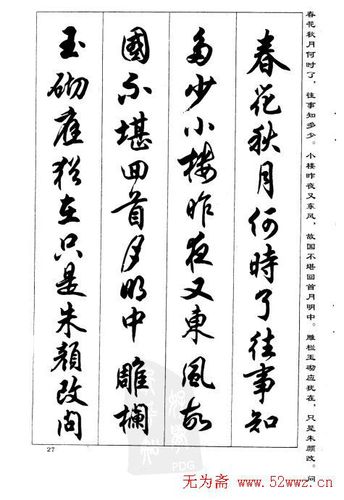 春花秋月何时了，往事知多少。小楼昨夜又东风，故国不堪回首月明中。雕栏玉砌应犹在，只是朱颜改。问
春花秋月何時了往事知
多少小樓昨夜又東風故
國不堪回首月明中雕欄
玉砌應猶在只是朱顏改問
27
PDG
无为斋 www.52wwz.cn